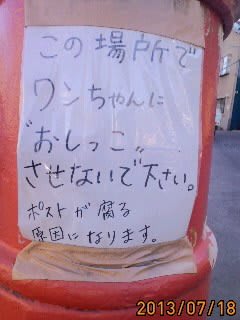 この場所で
ワンちゃんに
"おしっこ"
させないで下さい。
ポストが腐る
原因になります。
2013/07/18